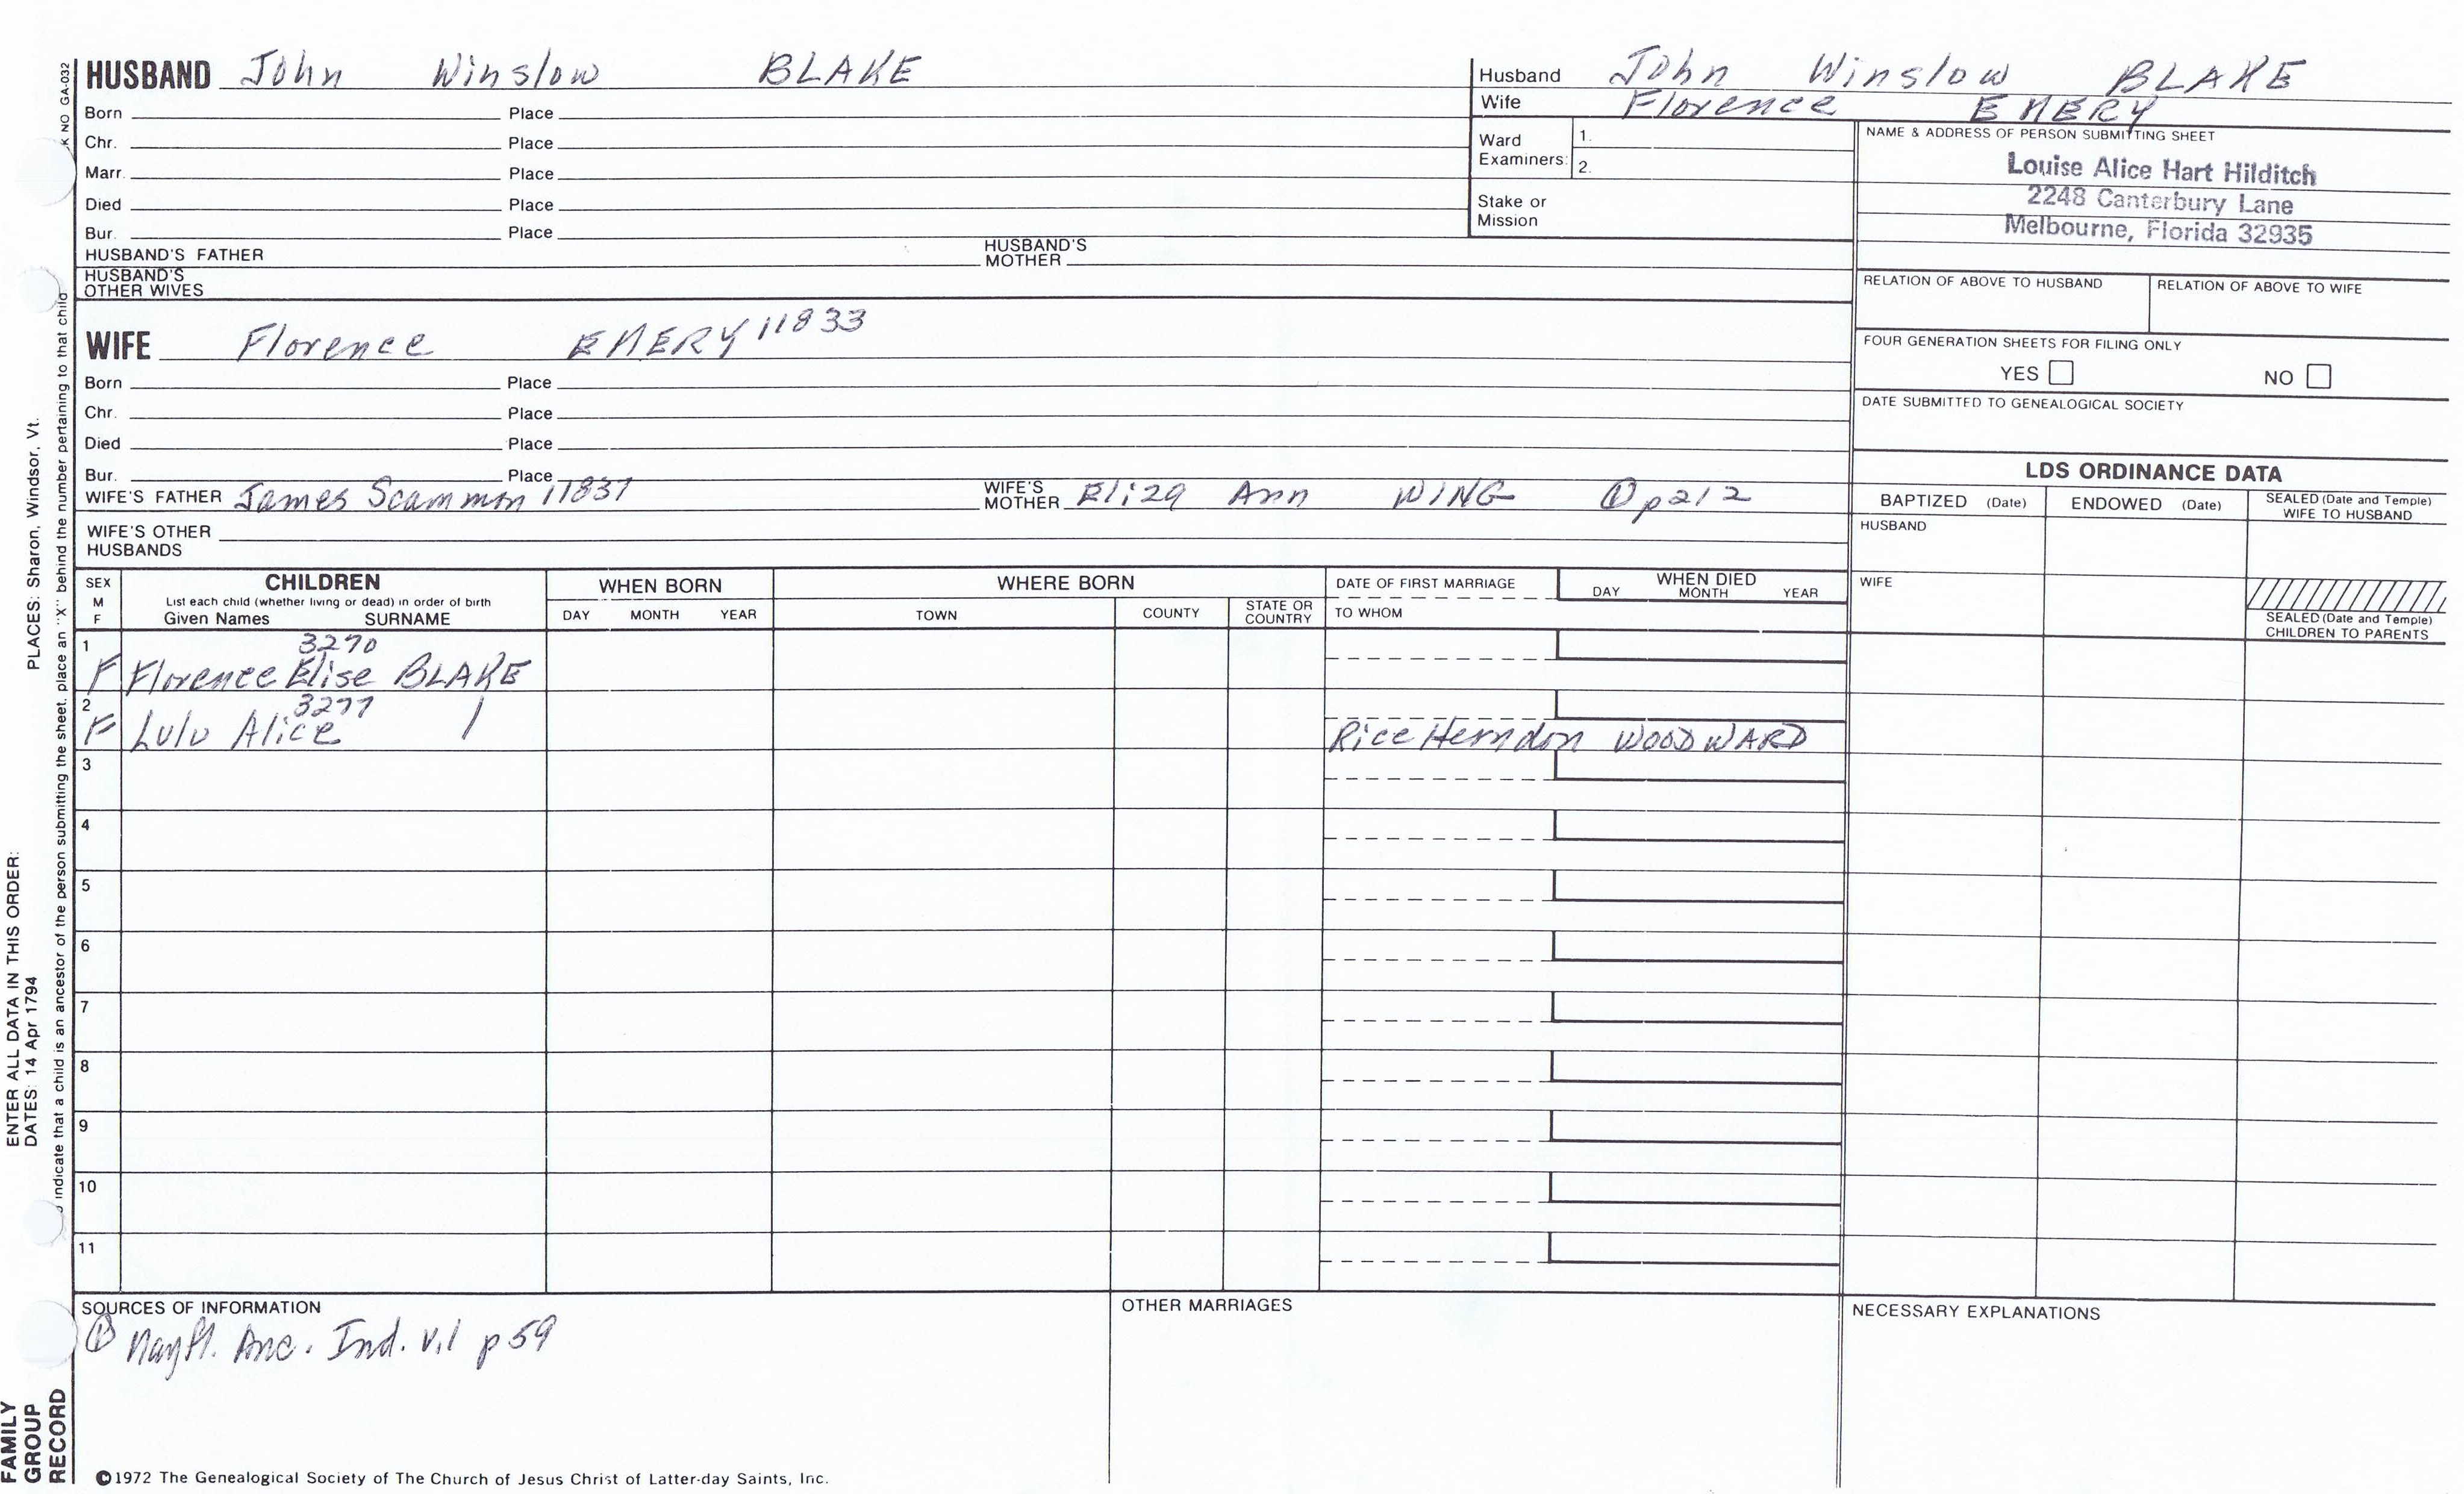 HUSBAND John Winslow BLAKE
Born Place
Chr. Place
Marr. Place
Died Place
Bur. Place
HUSBAND'S FATHER HUSBAND'S MOTHER
HUSBAND'S OTHER WIVES
WIFE Florence EMERY 11833
Born Place
Chr. Place
Died Place
Bur. Place
WIFE'S FATHER James Scammon 11831 WIFE'S MOTHER Eliza Ann WING ① p212
WIFE'S OTHER HUSBANDS
Husband John Winslow BLAKE
Wife Florence EMERY
Ward Examiners: 1.
2.
Stake or Mission
NAME & ADDRESS OF PERSON SUBMITTING SHEET
Louise Alice Hart Hilditch
2248 Canterbury Lane
Melbourne, Florida 32935
RELATION OF ABOVE TO HUSBAND RELATION OF ABOVE TO WIFE
FOUR GENERATION SHEETS FOR FILING ONLY
YES NO
DATE SUBMITTED TO GENEALOGICAL SOCIETY
LDS ORDINANCE DATA
BAPTIZED (Date) ENDOWED (Date) SEALED (Date and Temple) WIFE TO HUSBAND
HUSBAND
WIFE
SEALED (Date and Temple) CHILDREN TO PARENTS
SEX M F
CHILDREN
List each child (whether living or dead) in order of birth
Given Names SURNAME
WHEN BORN
DAY MONTH YEAR
WHERE BORN
TOWN COUNTY STATE OR COUNTRY
DATE OF FIRST MARRIAGE
TO WHOM
WHEN DIED
DAY MONTH YEAR
1 3270
F Florence Elise BLAKE
2 3277
F Lulu Alice Rice Herndon WOODWARD
3
4
5
6
7
8
9
10
11
SOURCES OF INFORMATION
① Mayfl. Anc. Ind. v.1 p 59
OTHER MARRIAGES
NECESSARY EXPLANATIONS
©1972 The Genealogical Society of The Church of Jesus Christ of Latter-day Saints, Inc.
FAMILY
GROUP
RECORD
ENTER ALL DATA IN THIS ORDER:
DATES: 14 Apr 1794 PLACES: Sharon, Windsor, Vt.
indicate that a child is an ancestor of the person submitting the sheet, place an "X" behind the number pertaining to that child
NO GA-032